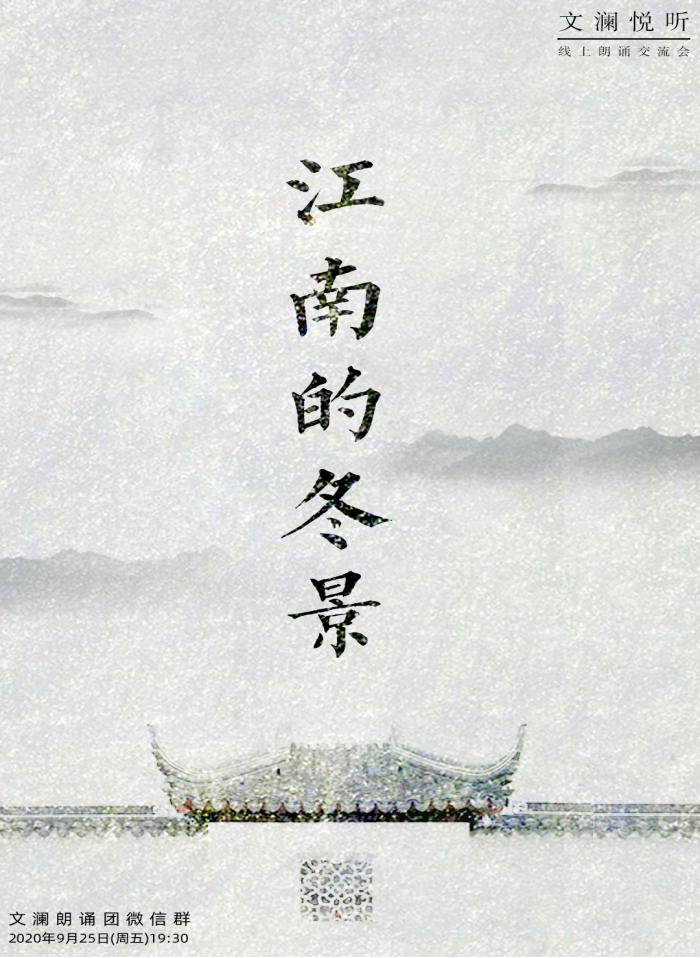 文澜悦听
线上朗诵交流会
江南的冬景
文澜朗诵团微信群
2020年9月25日(周五)19:30